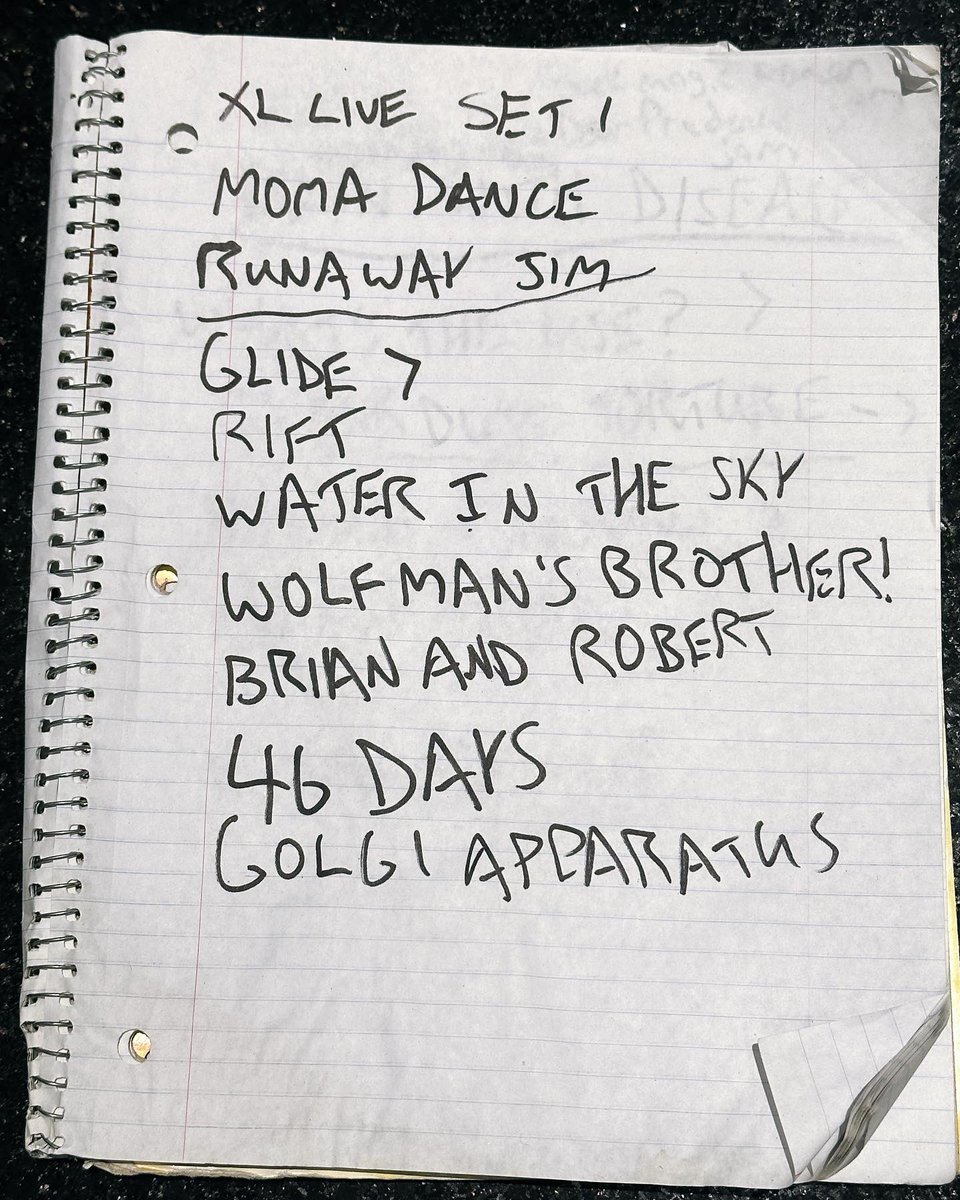 XL LIVE SET 1
MOMA DANCE
RUNAWAY JIM
GLIDE >
RIFT
WATER IN THE SKY
WOLFMAN'S BROTHER!
BRIAN AND ROBERT
46 DAYS
GOLGI APPARATUS